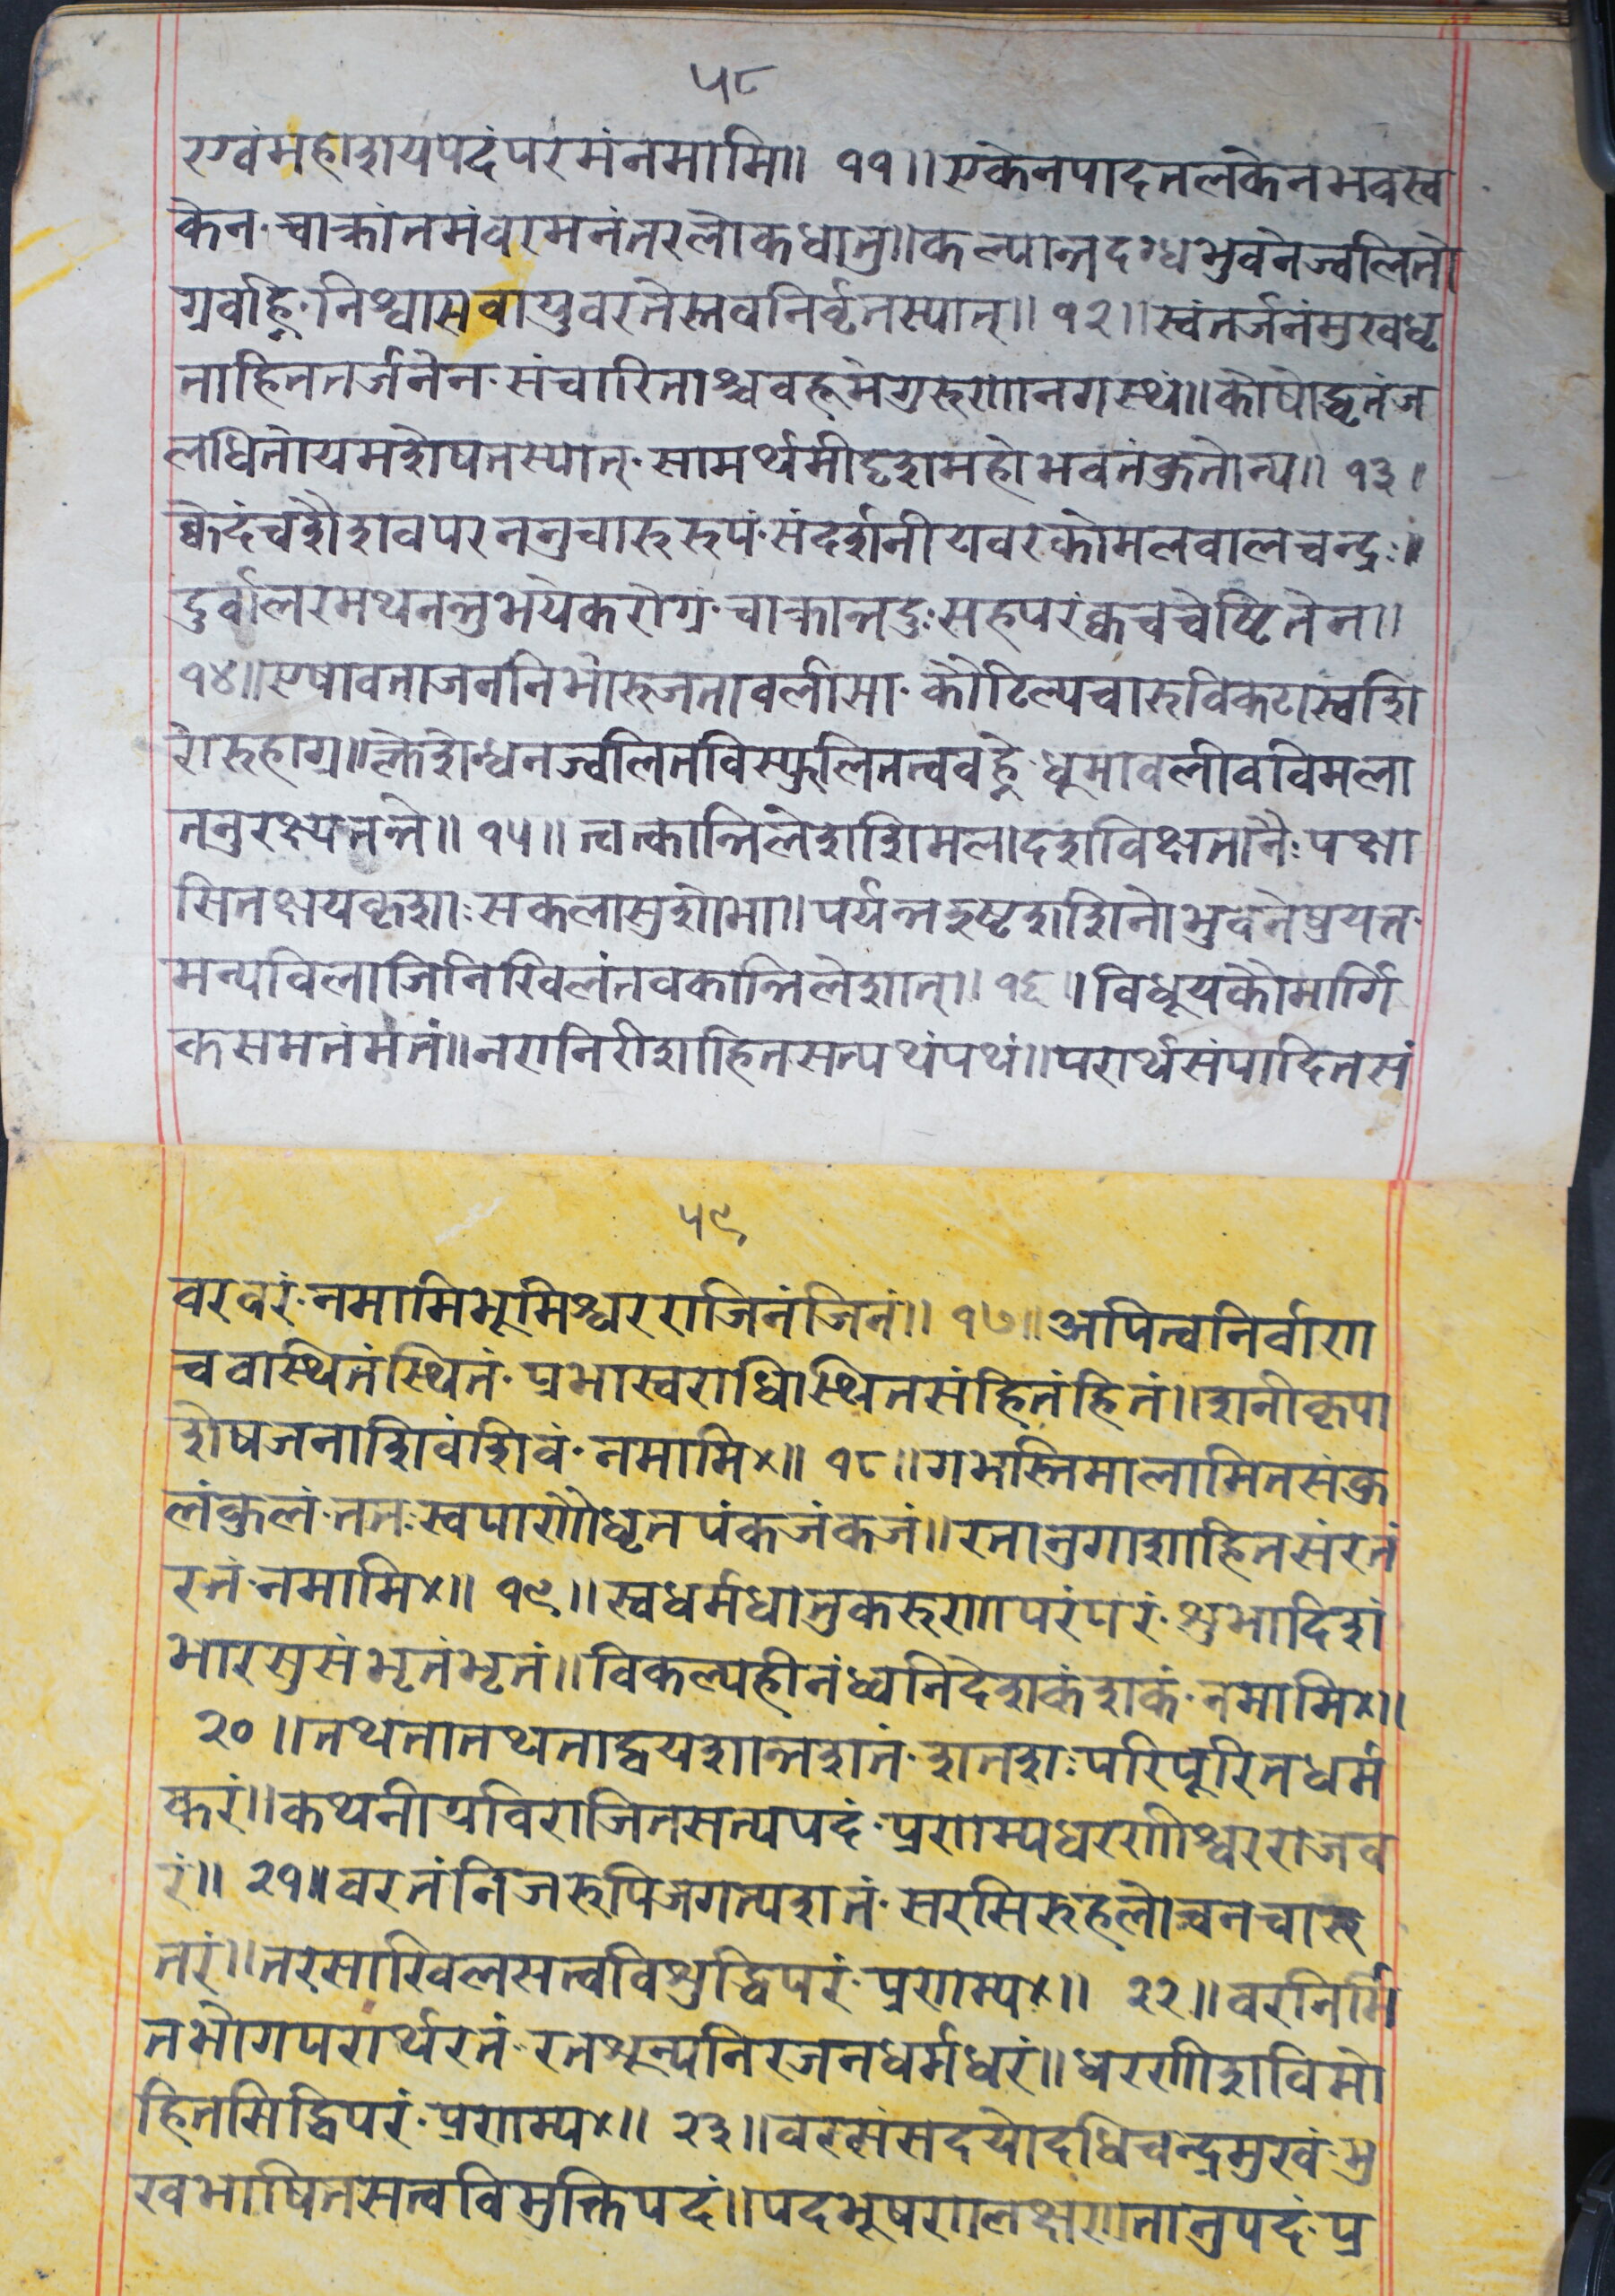 ५८
रग्वंमहाशयपदंपरमंनमामि॥ ११॥एकेनपादतलकेनभवस्व
केन·चाक्रांतमंवरमनंतरलोकधातु॥कल्पान्तदग्धभुवनेज्वलितो
ग्रवह्नि·निश्वासवायुवरतेस्तवनिर्वृतस्यात्॥ १२॥स्वंतर्जनंमुखधृ
ताहिततर्जनेन·संचारिताश्चवहूमेगुरुणानगस्थं॥कोषोद्धृतंज
लधितोयमशेषतस्यात्·सामर्थमीदृशमहोभवतंकुतोन्य॥ १३॥
क्वेदंचशैशवपरनतुचारुरुपं·संदर्शनीयवरकोमलवालचन्द्रः॥
दुर्वालरमथनन्तुभयेकरोग्रं·चाक्रान्तदुःसहपरंक्वचचेष्टितेन॥
१४॥एषावताजननिभोरुजतावलीसा·कौटिल्यचारुविकटास्वशि
रोरुहाग्र॥क्लेशेन्धनज्वलितविस्फुलितत्ववह्ने·धूमावलीवविमला
तनुरक्ष्यतन्ते॥ १५॥त्वत्कान्तिलेशशिमलादशविक्षतानैःपक्षा
सितक्षयकृशाःसकलासुशोभा॥पर्यन्तदुष्टशशिनोभुवनेप्रयत्न·
मन्यविलाजिनिखिलंतवकान्तिलेशात्॥ १६॥विधूयकौमार्गि
कसमतंमतं॥नरानिरीशाहितसत्पथंपथं॥परार्थसंपादितसं
५९
वरवरं·नमामिभूमिश्वरराजिनंजिनं॥ १७॥अपित्वनिर्वाण
चवास्थितंस्थितं·प्रभास्वराधिस्थितसंहितंहितं॥शनीकृपा
शेषजनाशिवंशिवं·नमामि×॥ १८॥गभस्तिमालामितसंकु
लंकुलं·ततःस्वपाणौधृतपंकजंकजं॥रतानुगाशाहितसंरतं
रतं·नमामि×॥ १९॥स्वधर्मधातुकरुणापरंपरं·शुभादिशं
भारसुसंभृतंभृतं॥विकल्पहीनंध्वनिदेशकंशकं·नमामि×॥
२०॥तथतातथताद्वयशान्तशतं·शतशःपरिपूरितधर्म
करं॥कथनीयविराजितसत्यपदं·प्रणाम्यधरणीश्वरराजव
रं॥ २१॥वरतंनिजरुपिजगत्पशतं·सरसिरुहलोचनचारु
तरं॥तरसाखिलसत्वविशुद्धिपरं·प्रणाम्य×॥ २२॥वरनिर्मि
तभोगपरार्थरतं·रतशून्यनिरजनधर्मधरं॥धरणीशविमो
हितसिद्धिपरं·प्रणाम्य×॥ २३॥वरसंसदयोदधिचन्द्रमुखं·मु
खभाषितसत्वविमुक्तिपदं॥पदभूषणलक्षणतानुपदं·प्र